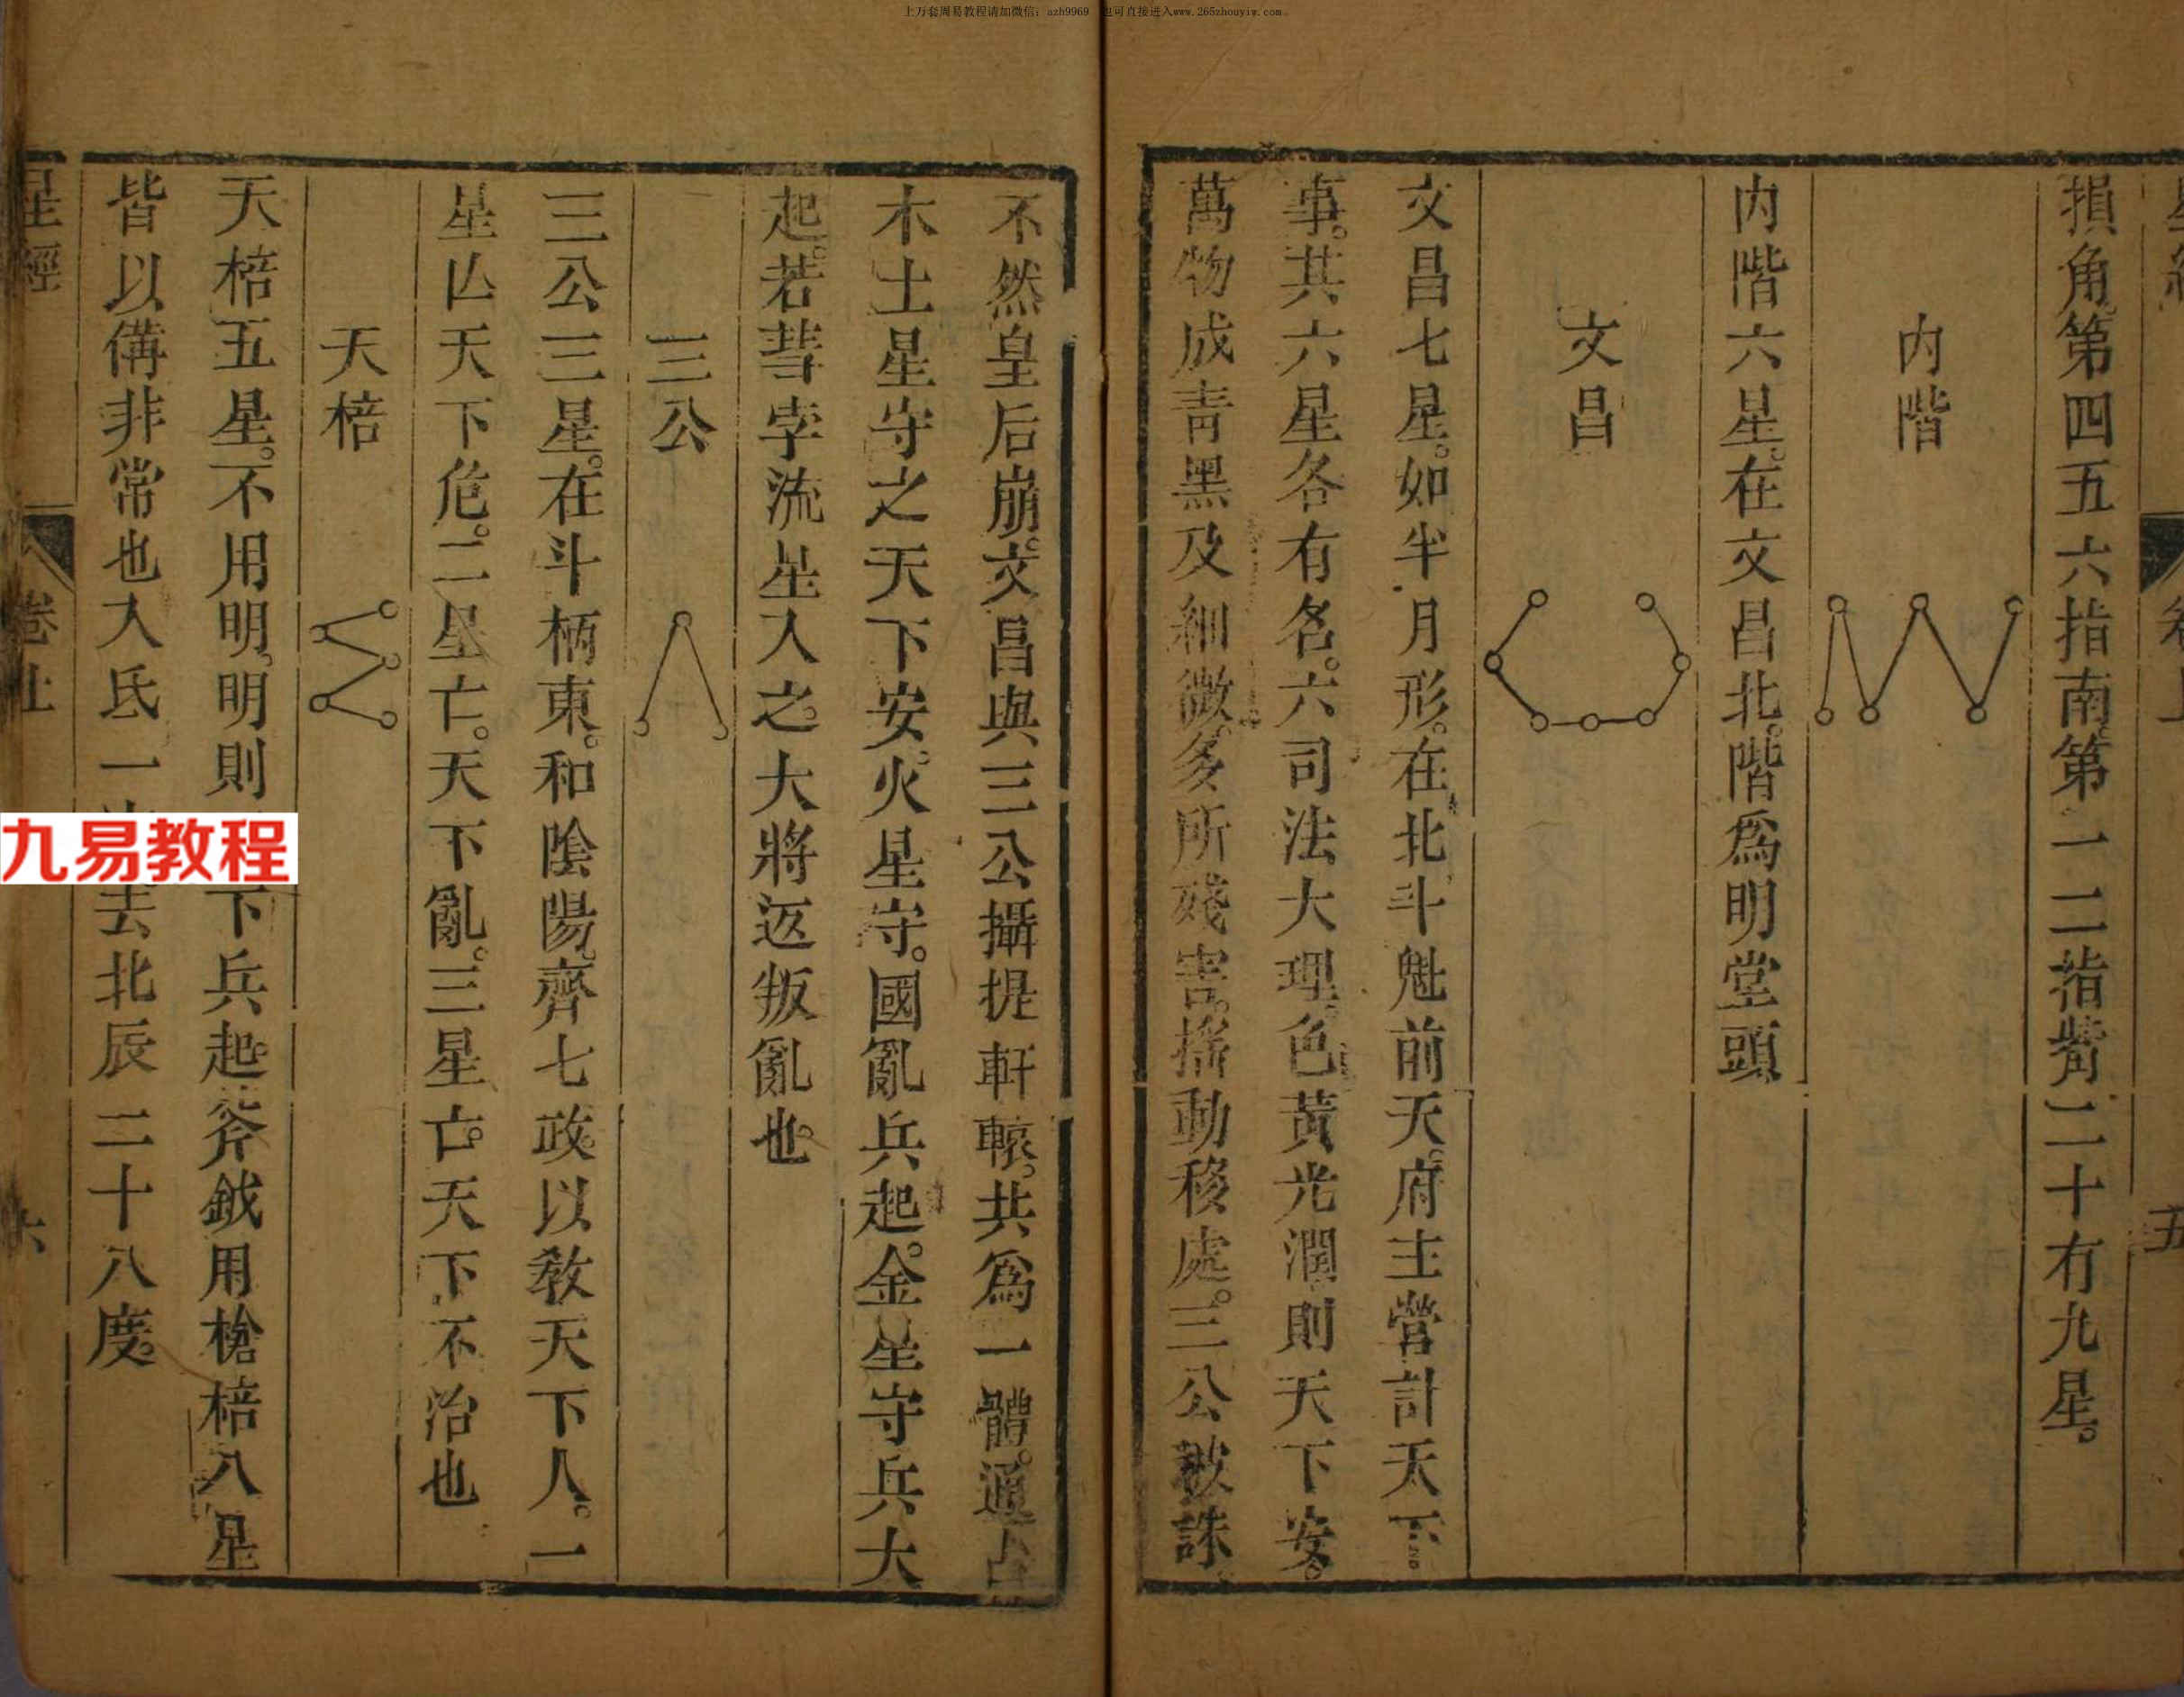 上万套周易教程请加微信：azh9969 也可直接进入www.265zhouyiw.com
五
損角第四五六指南。第一二指觜二十有九星。
内階
内階六星。在文昌北。階爲明堂頭
文昌
文昌七星。如半月形。在北斗魁前天。府主營計天下
事。其六星各有名。六司法大理。色黃光潤則天下安。
萬物成靑黑及細微。多所殘害。搖動移處。三公被誅。
不然皇后崩。文昌與三公攝提軒轅。共爲一體。通占
木土星守之天下安。火星守。國亂兵起。金星守兵大
起。若彗孛流星入之。大將返叛亂也。
三公
三公三星。在斗柄東。和陰陽。齊七政。以敎天下人。一
星亾天下危。二星亡。天下亂。三星亡。天下不治也
天棓
天棓五星。不用明。明則下兵起。斧鉞用槍棓八星
皆以備非常也入氐一去北辰二十八度。
星經
卷上
六
九易教程